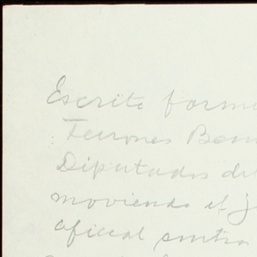 Escrito form
Terrones Ben
Diputados de
moviendo el j
oficial contra